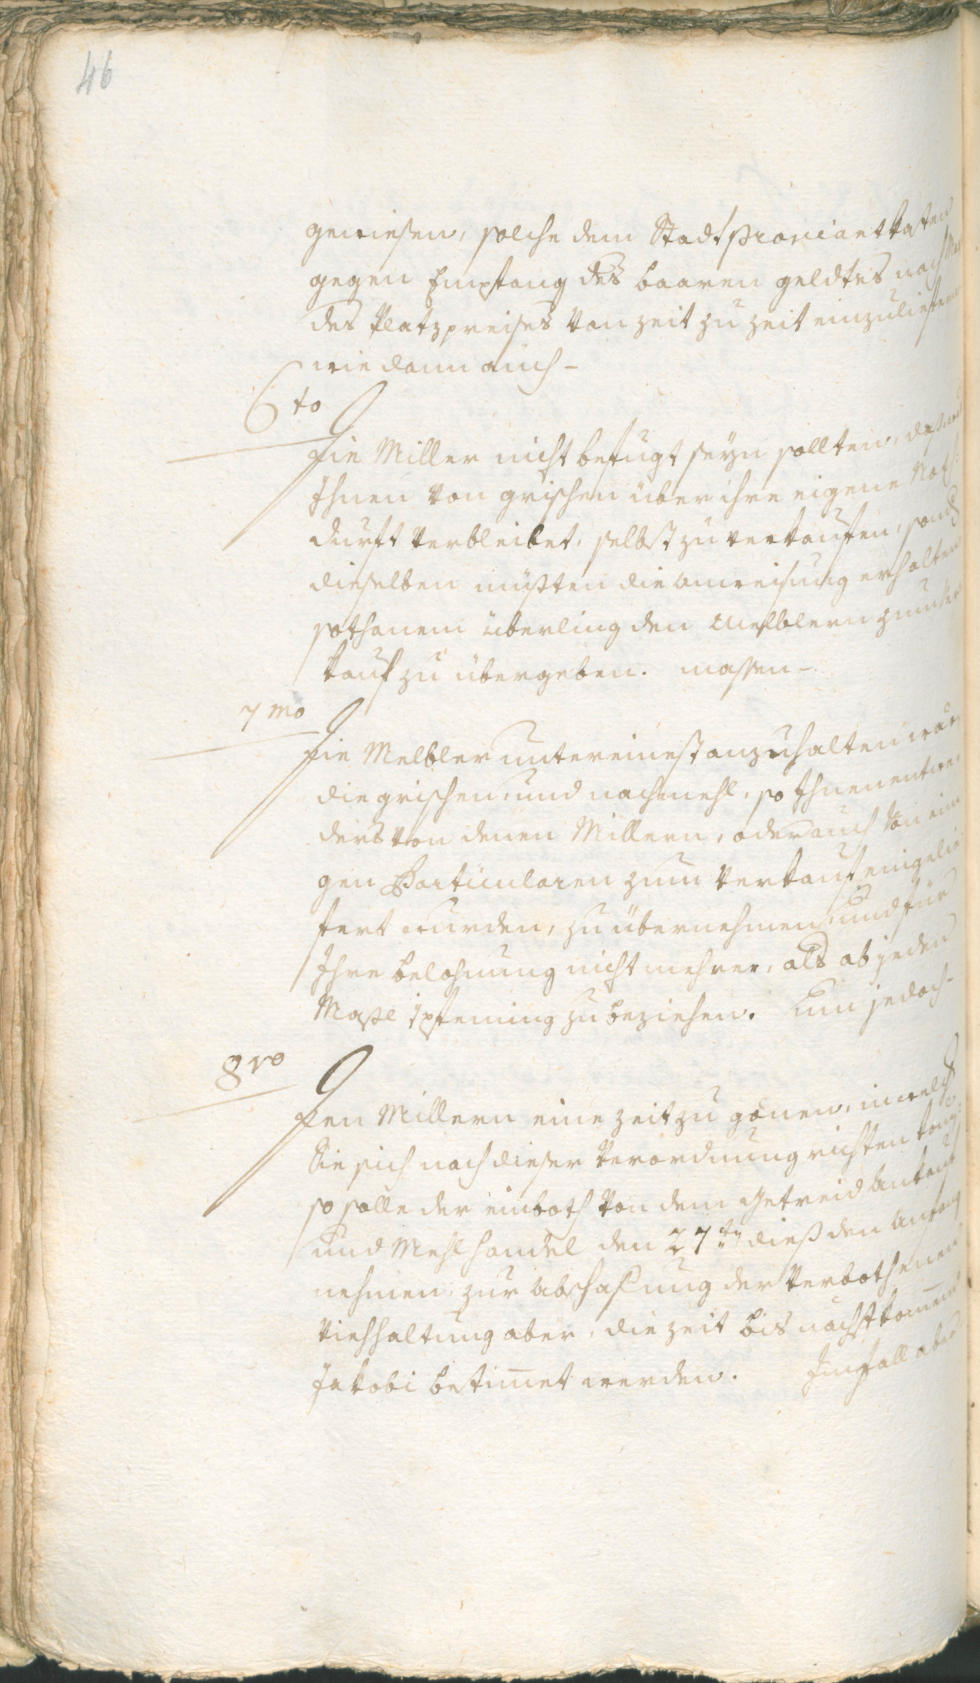 46
gewiesen, solche dem Stadt Proviantkasten
gegen Empfang des baaren geldtes nach
des Platzpreises von zeit zu zeit einzuliefern
wie dann auch –
6to
Die Miller nicht befugt seyn sollten, das was
Ihnen von grischen über ihre eigene Noth¬
durft verbleibet, selbst zu verkaufen, sond
dieselben müßten die anweisung erhalten
sothanem überling den Melblern zum ver
kauf zu übergeben. massen –
7mo
Die Melbler untereinest anzuhalten wären
die grischen, und nachmehl, so Ihnen entwe¬
ders von denen Millern, oder auch von eini
gen Particularen zum verkauf eingelie
fert wurden, zu übernehmen, und für
Ihre belohnung nicht mehrer, als ab jeden
Massl 1 pfening zu beziehen. Um jedoch –
8vo
Den Millern eine zeit zu gönen, in welch
Sie sich nach dieser verordnung richten könen
so solle der einboth von dem Getreid Ankauf
und Mehlhandel den 27ten dieß den Anfang
nehmen, zur abschafung der verbothenen
viehhaltung aber, die zeit bis nächstkomend
Jakobi bestimet werden. Imfall aber